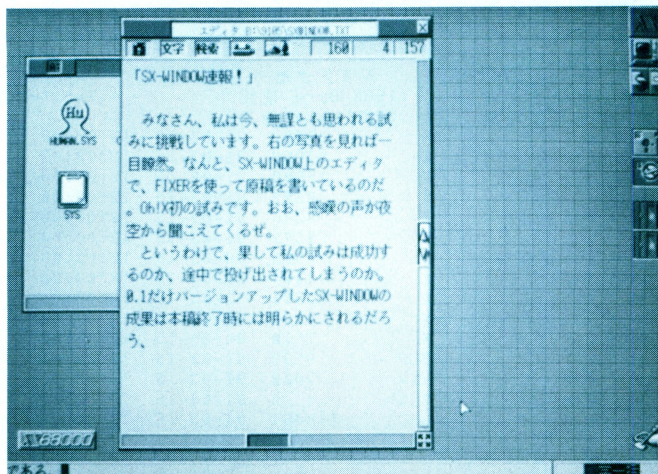 エディタ
文字 検索 160 4 157
「SX-WINDOW速報！」
みなさん、私は今、無謀とも思われる試
みに挑戦しています。右の写真を見れば一
目瞭然。なんと、SX-WINDOW上のエディタ
で、FIXERを使って原稿を書いているのだ
。Oh!X初の試みです。おお、感嘆の声が夜
空から聞こえてくるぜ。
というわけで、果して私の試みは成功す
るのか、途中で投げ出されてしまうのか。
0.1だけバージョンアップしたSX-WINDOWの
成果は本稿終了時には明らかにされるだろ
う、
Hu
HUMAN.SYS
SYS
X68000
である